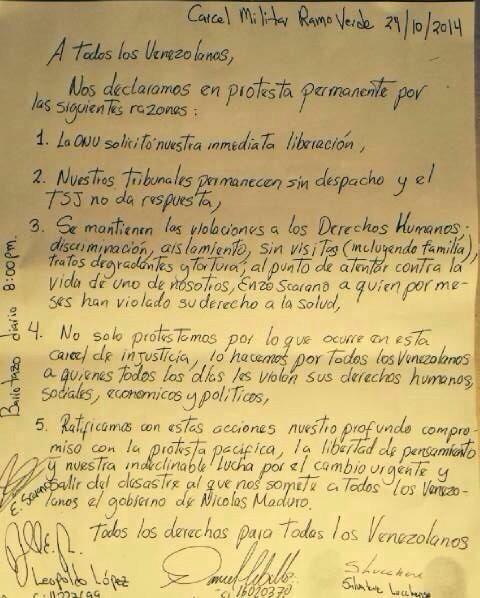 Carcel Militar Ramo Verde 24/10/2014
A Todos los Venezolanos,
Nos declaramos en protesta permanente por
las siguientes razones:
1. La ONU solicitó nuestra inmediata liberación,
2. Nuestros Tribunales permanecen sin despacho y el
TSJ no da respuesta,
3. Se mantienen las violaciones a los Derechos Humanos:
discriminación, aislamiento, sin visitas (incluyendo familia),
tratos degradantes y tortura, al punto de atentar contra la
vida de uno de nosotros, Enzo Scarano a quien por me-
ses han violado su derecho a la salud,
4. No solo protestamos por lo que ocurre en esta
carcel de injusticia, lo hacemos por Todos los Venezolanos
a quienes todos los días les violan sus derechos humanos,
sociales, economicos y políticos,
5. Ratificamos con estas acciones nuestro profundo compro-
miso con la protesta pacífica, la libertad de pensamiento
y nuestra indeclinable lucha por el cambio urgente y
salir del desastre al que nos somete a Todos los Venezo-
lanos el gobierno de Nicolas Maduro.
Todos los derechos para Todos los Venezolanos
Barrotazo diario 8:00pm.
E. Scarano
Leopoldo López
Daniel Ceballos
CI 16020370
S Lucchese
Salvatore Lucchese